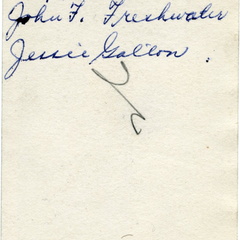 John F. Freshwater
Jessie Galton.